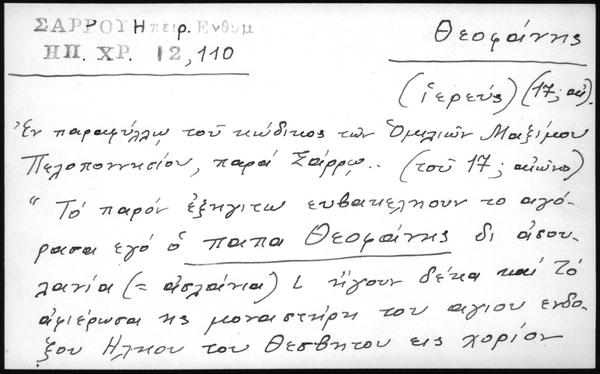 ΣΑΡΡΟΥ Ηπειρ. Ενθυμ
ΗΠ. ΧΡ. 12, 110
Θεοφάνης
(ἱερεύς) (17; αἰ).
Ἐν παραφύλλῳ τοῦ κώδικος τῶν Ὁμιλιῶν Μαξίμου
Πελοποννησίου, παρά Σάρρῳ.. (τοῦ 17; αἰῶνος)
"Τό παρόν ἐξηγιτω ευβακεληουν το αγό-
ρασα εγό ὁ παπα Θεοφάνης δι ἀσου-
λανία (= ἀσλάνια) ι ἤγουν δέκα καί τό
ἀφιέρωσα ης μοναστήρη του αγιου ενδο-
ξου Ηλιηου του Θεσβητου εις χορίον